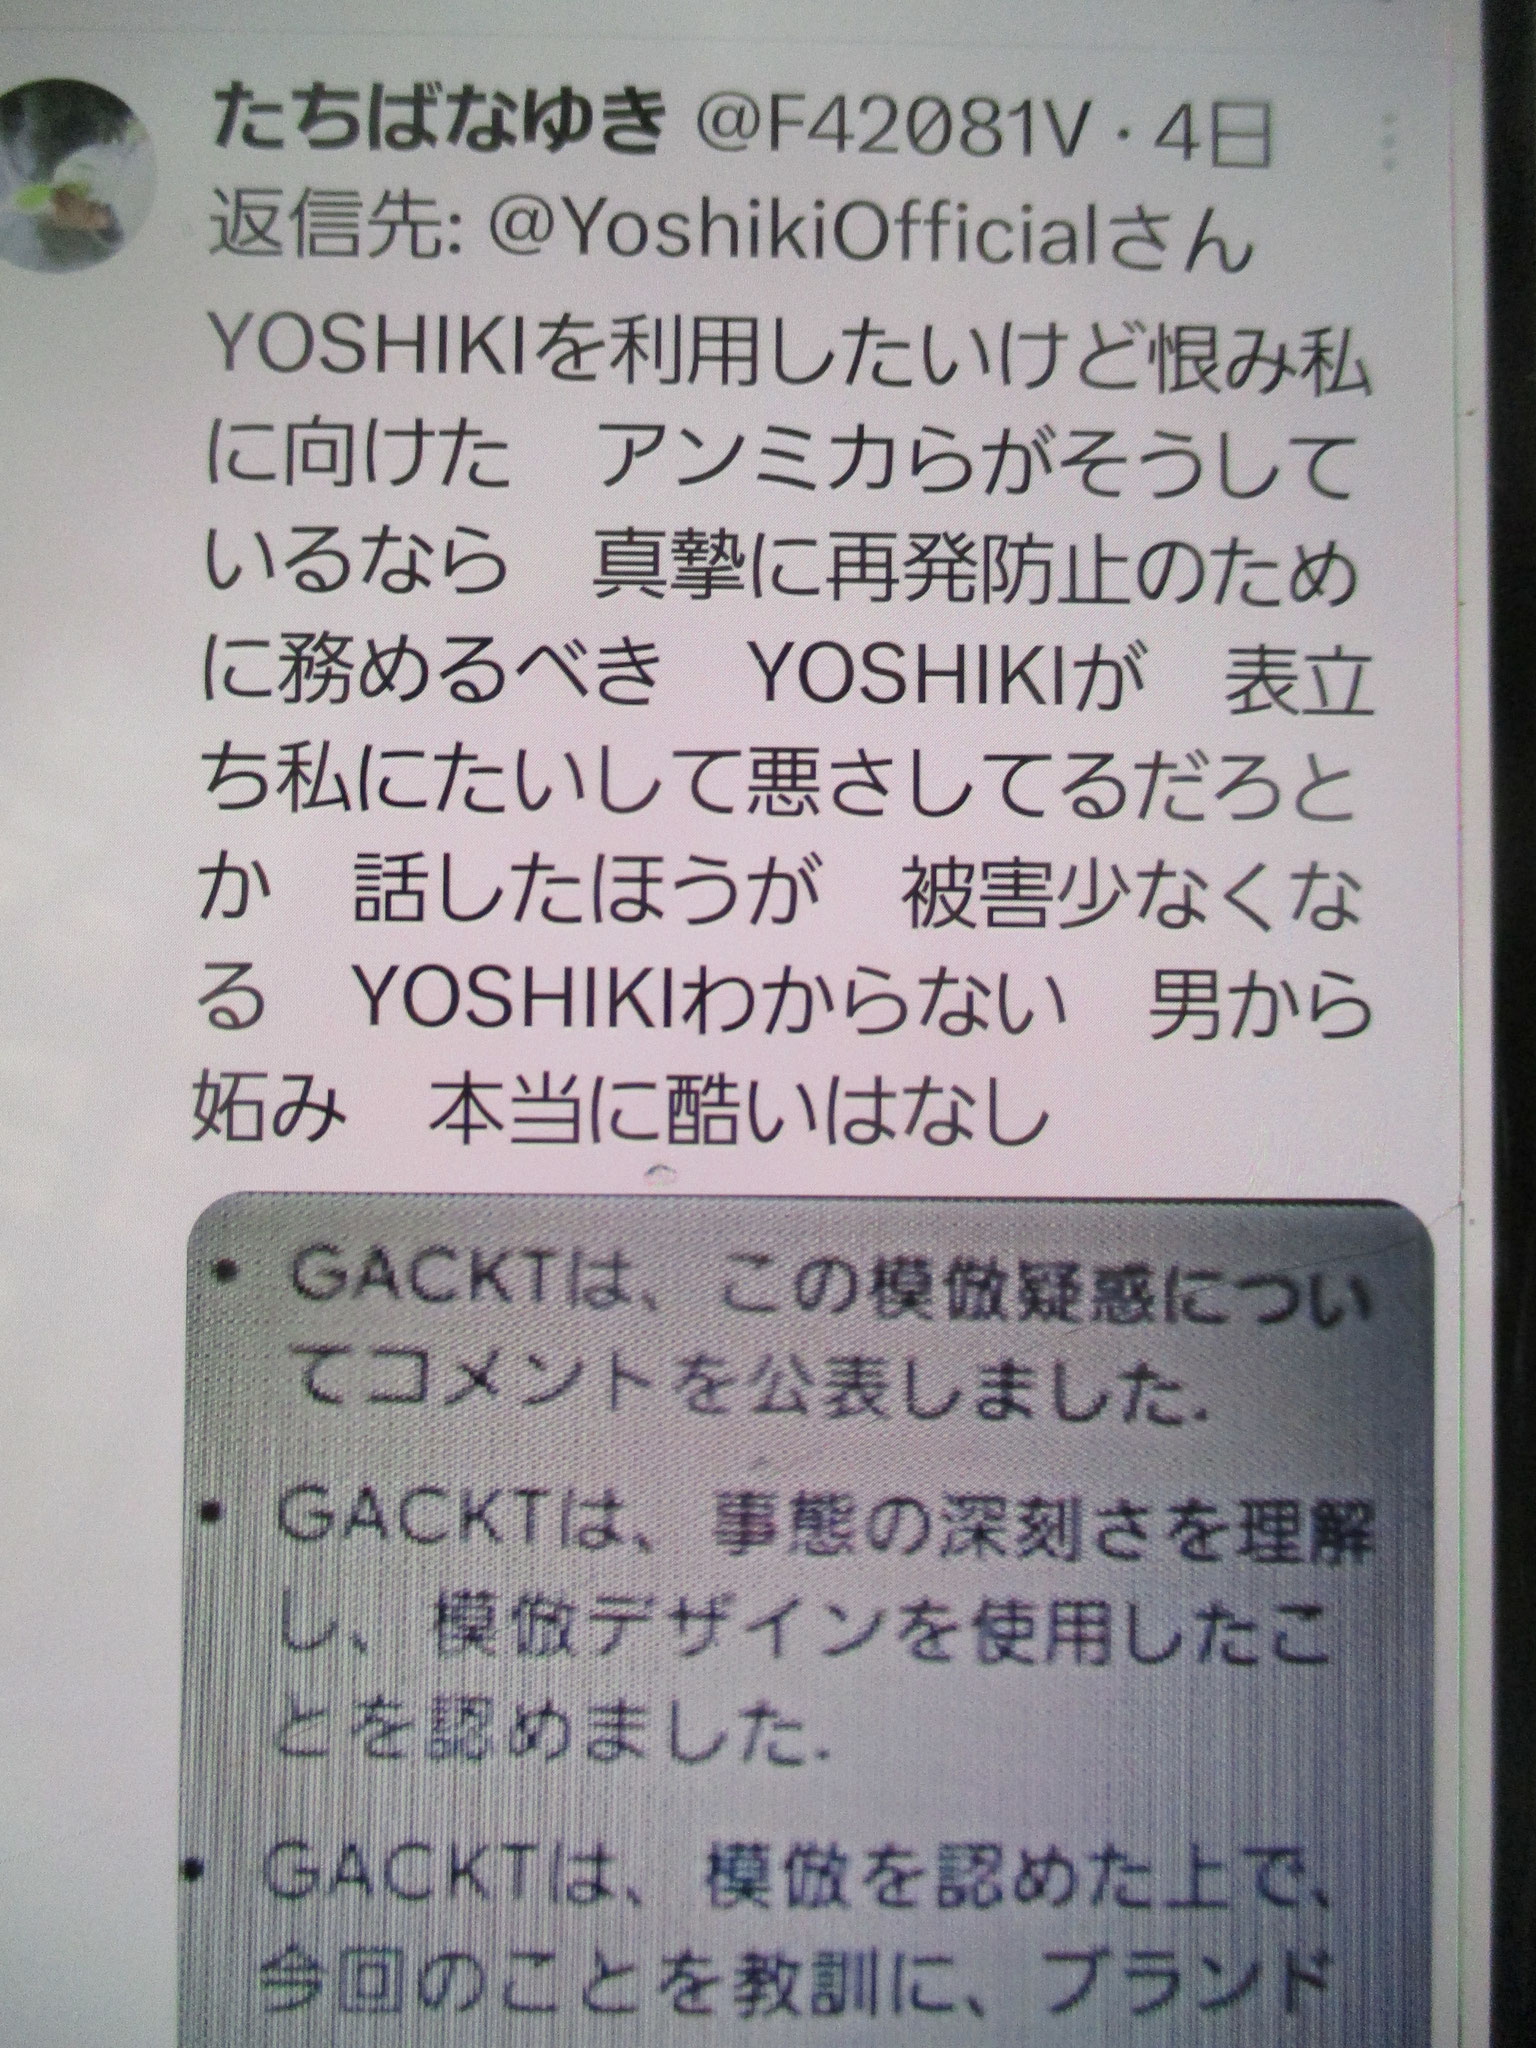 たちばなゆき @F42081V・4日
返信先: @YoshikiOfficialさん
YOSHIKIを利用したいけど恨み私
に向けた　アンミカらがそうして
いるなら　真摯に再発防止のため
に務めるべき　YOSHIKIが　表立
ち私にたいして悪さしてるだろと
か　話したほうが　被害少なくな
る　YOSHIKIわからない　男から
妬み　本当に酷いはなし
• GACKTは、この模倣疑惑につい
てコメントを公表しました.
• GACKTは、事態の深刻さを理解
し、模倣デザインを使用したこ
とを認めました.
• GACKTは、模倣を認めた上で、
今回のことを教訓に、ブランド